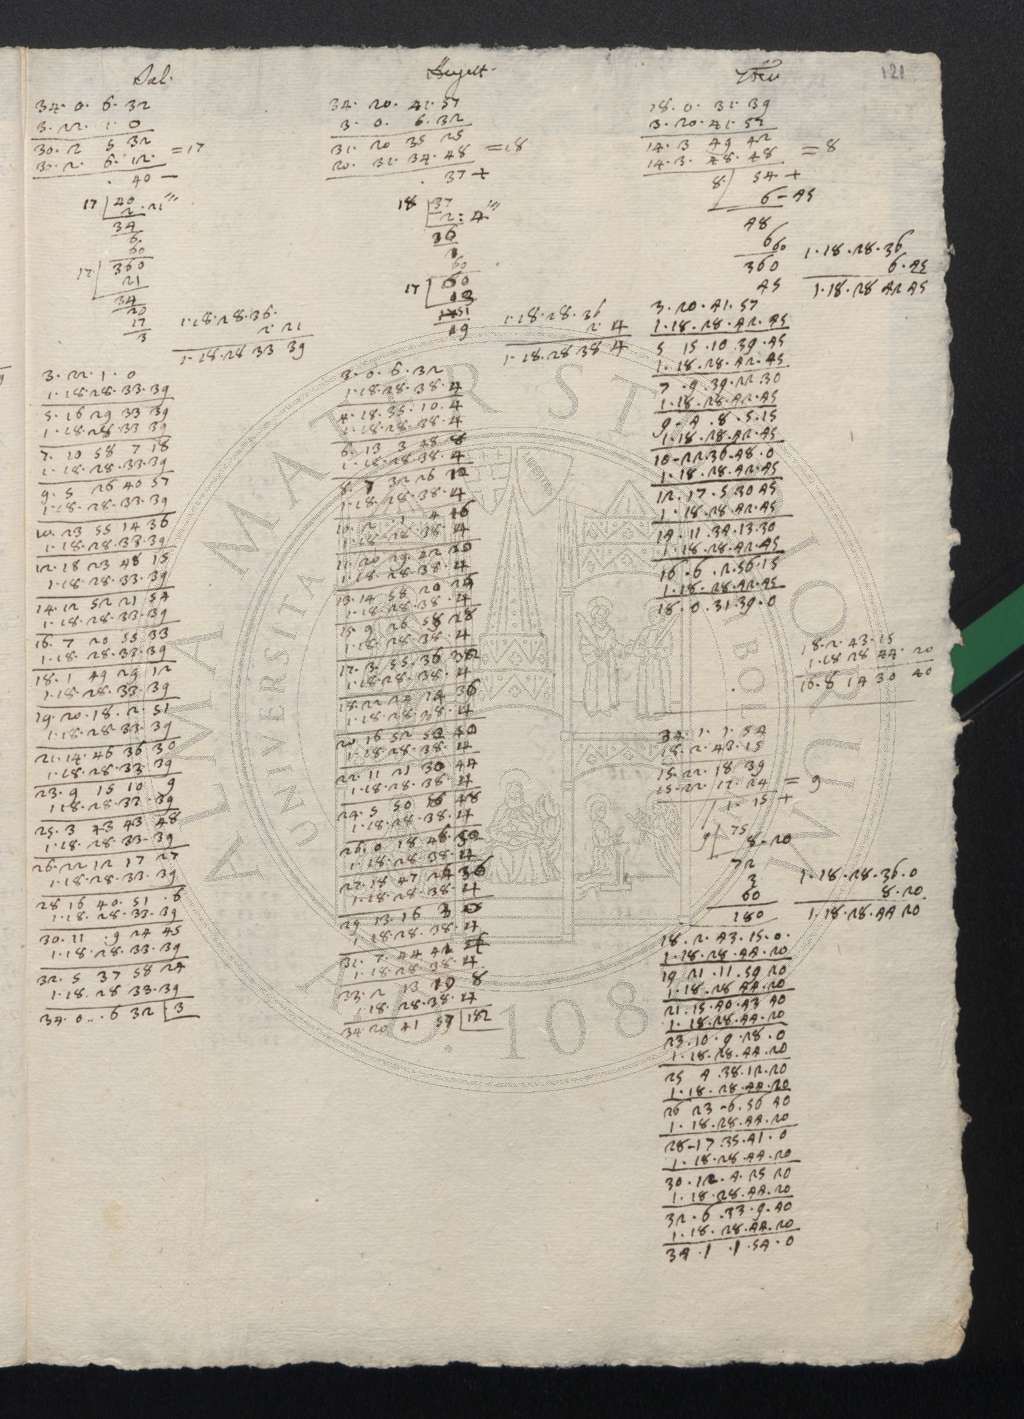 121
Jul.
34. 0. 6. 32
3. 22. 1. 0
30. 2 5 32
30. 2. 6. 12. =17
. 40 —
17 40
2. 21'''
34
6
60
17 360
21
34
20
17
3
1. 18. 28. 36.
2 21
1. 18. 28 33 39
3. 22. 1. 0
1. 18. 28. 33. 39
5. 16 29 33 39
1. 18. 28 33 39
7. 10 58 7 18
1. 18. 28. 33. 39
9. 5 26 40 57
1. 18. 28. 33. 39
10. 23 55 14 36
1. 18. 28. 33. 39
12. 18 23 48 15
1. 18. 28. 33. 39
14. 12 52 21 54
1. 18. 28. 33. 39
16. 7 20 55 33
1. 18. 28. 33. 39
18. 1 49 29 12
1. 18. 28. 33. 39
19. 20. 18. 2. 51
1. 18. 28. 33. 39
21. 14. 46 36 30
1. 18. 28. 33. 39
23. 9 15 10 9
1. 18. 28. 33. 39
25. 3 43 43 48
1. 18. 28. 33. 39
26. 22 12 17 27
1. 18. 28. 33. 39
28 16 40. 51 . 6
1. 18. 28. 33. 39
30. 11 . 9 24 45
1. 18. 28. 33. 39
32. 5 37 58 24
1. 18. 28 33. 39
34. 0. . . 6 32 3
34. 20. 41. 57
3. 0. 6. 32
31. 20 35 25
20. 31. 34. 48 =18
. 37 +
18 37
2 : 4'''
36
1
60
17 60
1. 18. 28. 36
2. 4
1. 18. 28 38 4
3. 0. 6. 32
1. 18. 28. 38. 4
4. 18. 35. 10. 4
1. 18. 28. 38. 4
6. 13 3 48 8
1. 18. 28. 38. 4
8. 7 32 26 12
1. 18. 28. 38. 4
10. 2 1 4 16
1. 18. 28. 38. 4
11. 20 29. 42 20
1. 18. 28. 38. 4
13. 14 58 20 24
1. 18. 28. 38. 4
15. 9 26 58 28
1. 18. 28. 38. 4
17. 3. 55. 36 32
1. 18. 28. 38. 4
18. 22 24 14 36
1. 18. 28. 38. 4
20. 16 52 52 40
1. 18. 28. 38. 4
22. 11 21 30 44
1. 18. 28. 38. 4
24. 5 50 8 48
1. 18. 28. 38. 4
26. 0 18 46 52
1. 18. 28. 38. 4
27. 18 47 24 56
1. 18. 28. 38. 4
29. 13. 16 3 0
1. 18. 28. 38. 4
31. 7. 44 41 4
1. 18. 28. 38. 4
33. 2 13 19 8
1. 18. 28. 38. 4
34 20 41 57 12
18. 0. 31. 39
3. 20. 41. 57
14. 3 49 42
14. 3. 48. 48 = 8
8 54 +
6 — 45
48
6
60
360
45
1. 18. 28. 36
6. 45
1. 18. 28 42 45
3. 20. 41. 57
1. 18. 28. 42. 45
5 15. 10 39. 45
1. 18. 28. 42. 45
7 . 9 . 39. 22 30
1. 18. 28. 42. 45
9 - 4 . 8 . 5. 15
1. 18. 28. 42. 45
10 - 22 36. 48. 0
1. 18. 28. 42. 45
12. 17. 5 30 45
1. 18. 28. 42. 45
14. 11. 34. 13. 30
1. 18. 28. 42. 45
16. 6. 2. 56. 15
1. 18. 28. 42. 45
18. 0. 31. 39. 0
18. 2. 43. 15
1. 18 28 44. 20
16. 8 14 30 40
34. 1. 1. 54
18. 2. 43. 15
15. 22. 18. 39
15. 22. 17. 24 = 9
1. 15 +
9 75
8 - 20
72
3
60
180
1. 18. 28. 36. 0
8. 20
1. 18. 28. 44 20
18. 2. 43. 15. 0.
1. 18. 28. 44. 20
19 21. 11. 59 20
1. 18. 28 44. 20
21. 15. 40. 43 40
1. 18. 28. 44. 20
23. 10. 9. 28. 0
1. 18. 28. 44. 20
25 4 . 38. 12. 20
1. 18. 28. 44. 20
26 23 - 6. 56 40
1. 18. 28. 44. 20
28 - 17. 35. 41. 0
1. 18. 28. 44. 20
30. 12. 4. 25 20
1. 18. 28. 44. 20
32. 6. 33. 9. 40
1. 18. 28. 44. 20
34. 1 . 1. 54. 0
ALMA MATER STUDIORUM
UNIVERSITÀ DI BOLOGNA
A.D. 1088